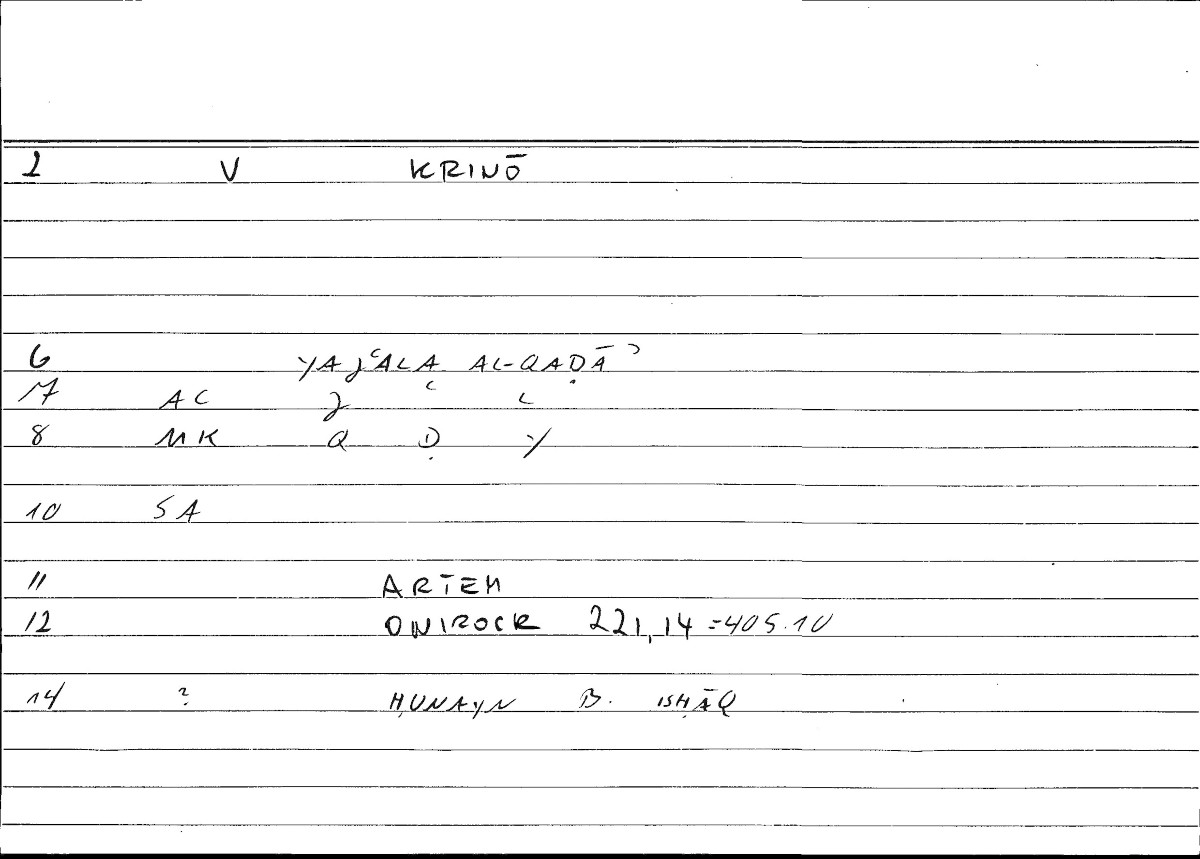 1 V KRINŌ
6 YAJʿALA AL-QAḌĀʾ
7 AC J ʿ L
8 MK Q Ḍ Y
10 SA
11 ARTEM
12 ONIROCR 221,14 =405.10
14 ? ḤUNAYN B. ISḤĀQ